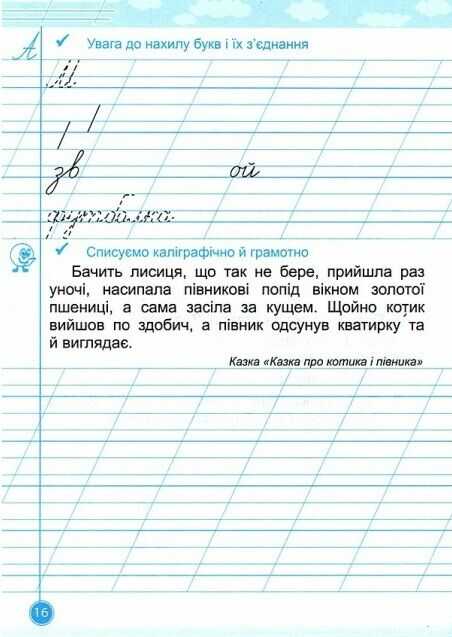 А
Увага до нахилу букв і їх з'єднання
М
зв ой
футболка
Списуємо каліграфічно й грамотно
Бачить лисиця, що так не бере, прийшла раз
уночі, насипала півникові попід вікном золотої
пшениці, а сама засіла за кущем. Щойно котик
вийшов по здобич, а півник одсунув кватирку та
й виглядає.
Казка «Казка про котика і півника»
16